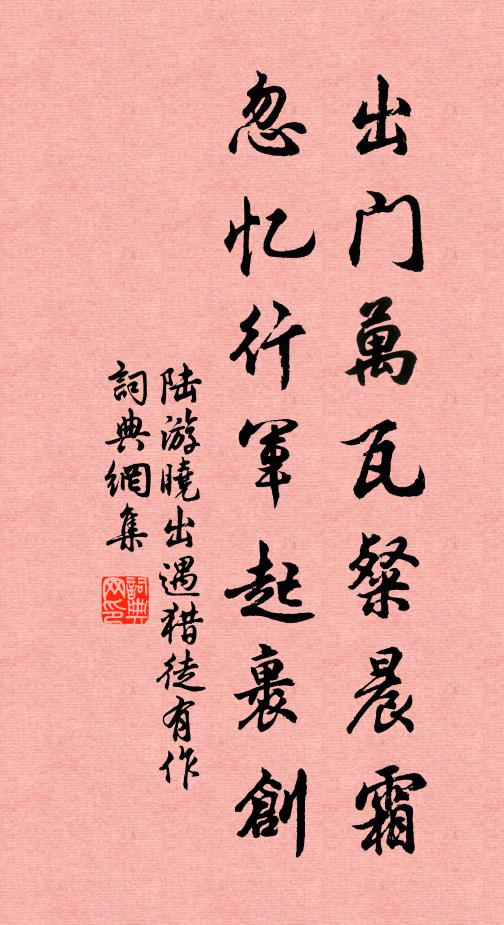 出门萬瓦粲晨霜
忽忆行军起裹創
陆游曉出遇猎徒有作
詞典網集
詞典网印